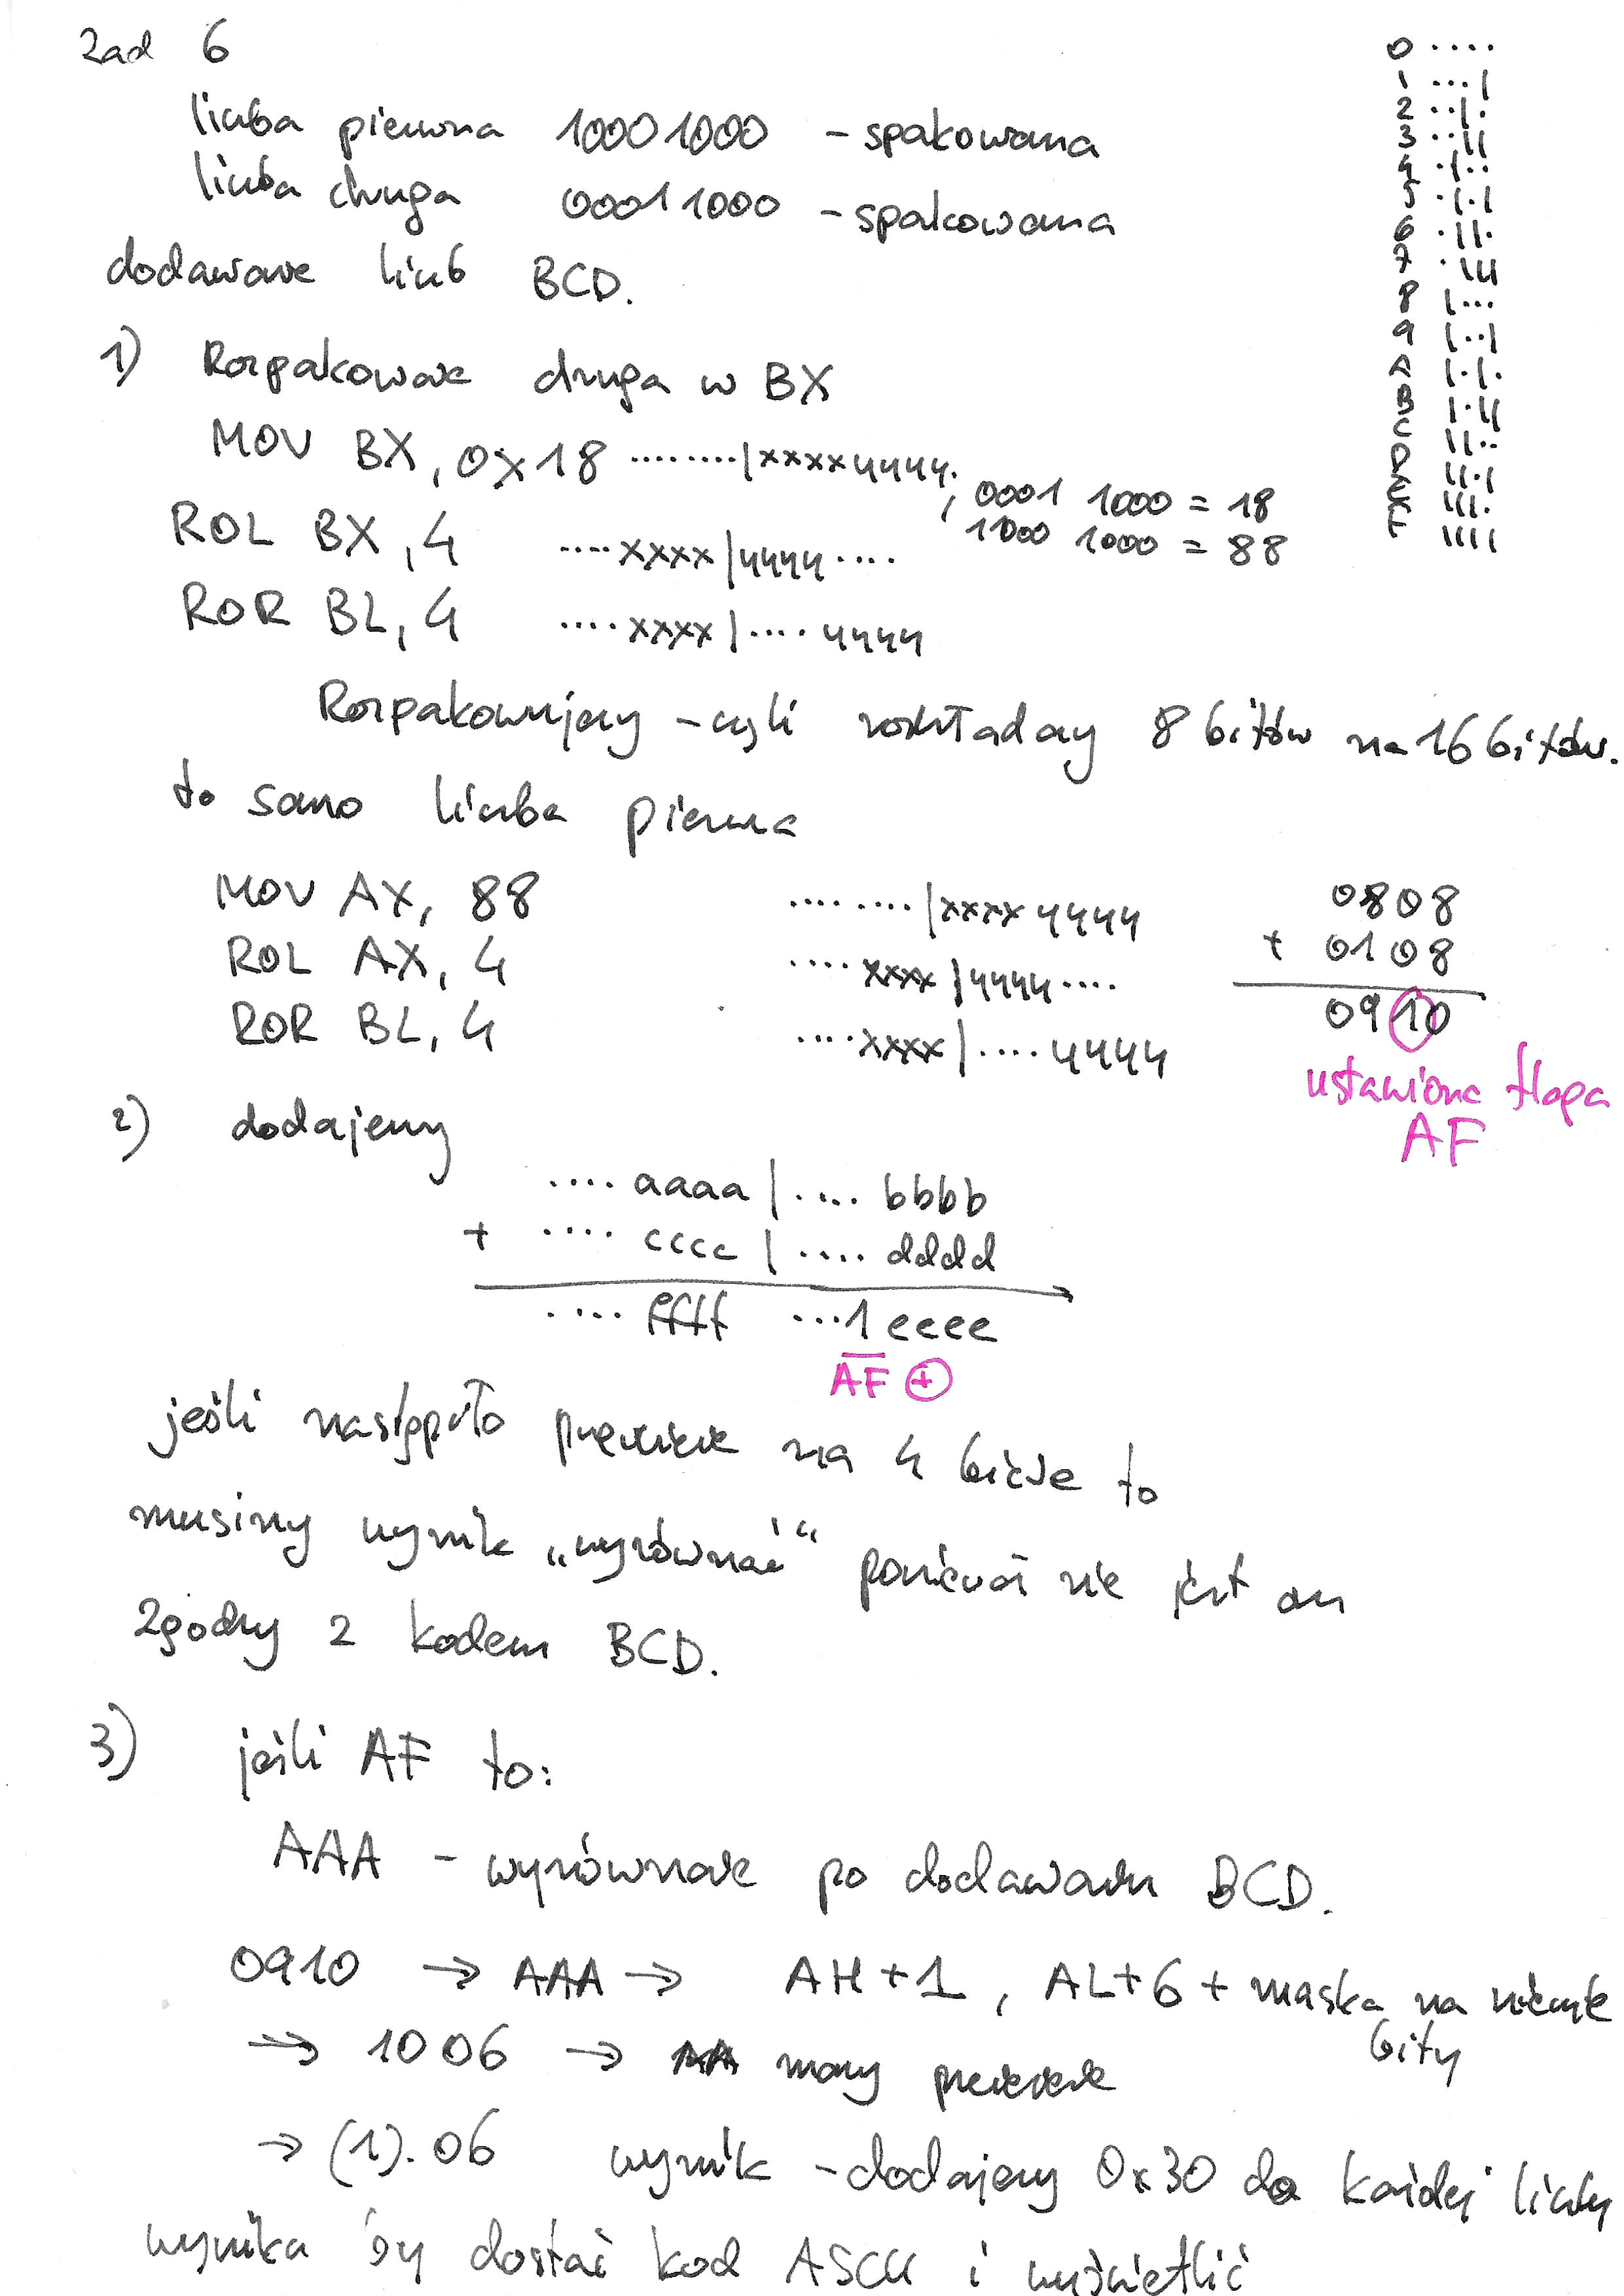 Zad 6
liczba pierwsza 10001000 - spakowana
liczba druga 00011000 - spakowana
dodawanie liczb BCD.
1) Rozpakowanie druga w BX
MOV BX, 0x18 ········|xxxxyyyy; 0001 1000 = 18
1000 1000 = 88
ROL BX, 4 ····xxxx|yyyy····
ROR BL, 4 ····xxxx|····yyyy
Rozpakowujemy - czyli rozkładamy 8 bitów na 16 bitów.
to samo liczba pierwsza
MOV AX, 88 ········|xxxxyyyy
ROL AX, 4 ····xxxx|yyyy····
ROR BL, 4 ····xxxx|····yyyy
0808
+ 0108
0910
ustawiona flaga
AF
2) dodajemy
···· aaaa | ···· bbbb
+ ···· cccc | ···· dddd
···· ffff ···1 eeee
AF +
jeśli nastąpiło przeniesienie na 4 bicie to
musimy wynik „wyrównać“ ponieważ nie jest on
zgodny z kodem BCD.
3) jeśli AF to:
AAA - wyrównanie po dodawaniu BCD.
0910 → AAA → AH+1, AL+6 + maska na
bity
→ 1006 → mamy przeniesienie
→ (1).06 wynik - dodajemy 0x30 do każdej liczby
wyniku by dostać kod ASCII i wyświetlić
0 ····
1 ···|
2 ··|·
3 ··||
4 ·|··
5 ·|·|
6 ·||·
7 ·|||
8 |···
9 |··|
A |·|·
B |·||
C ||··
D ||·|
E |||·
F ||||